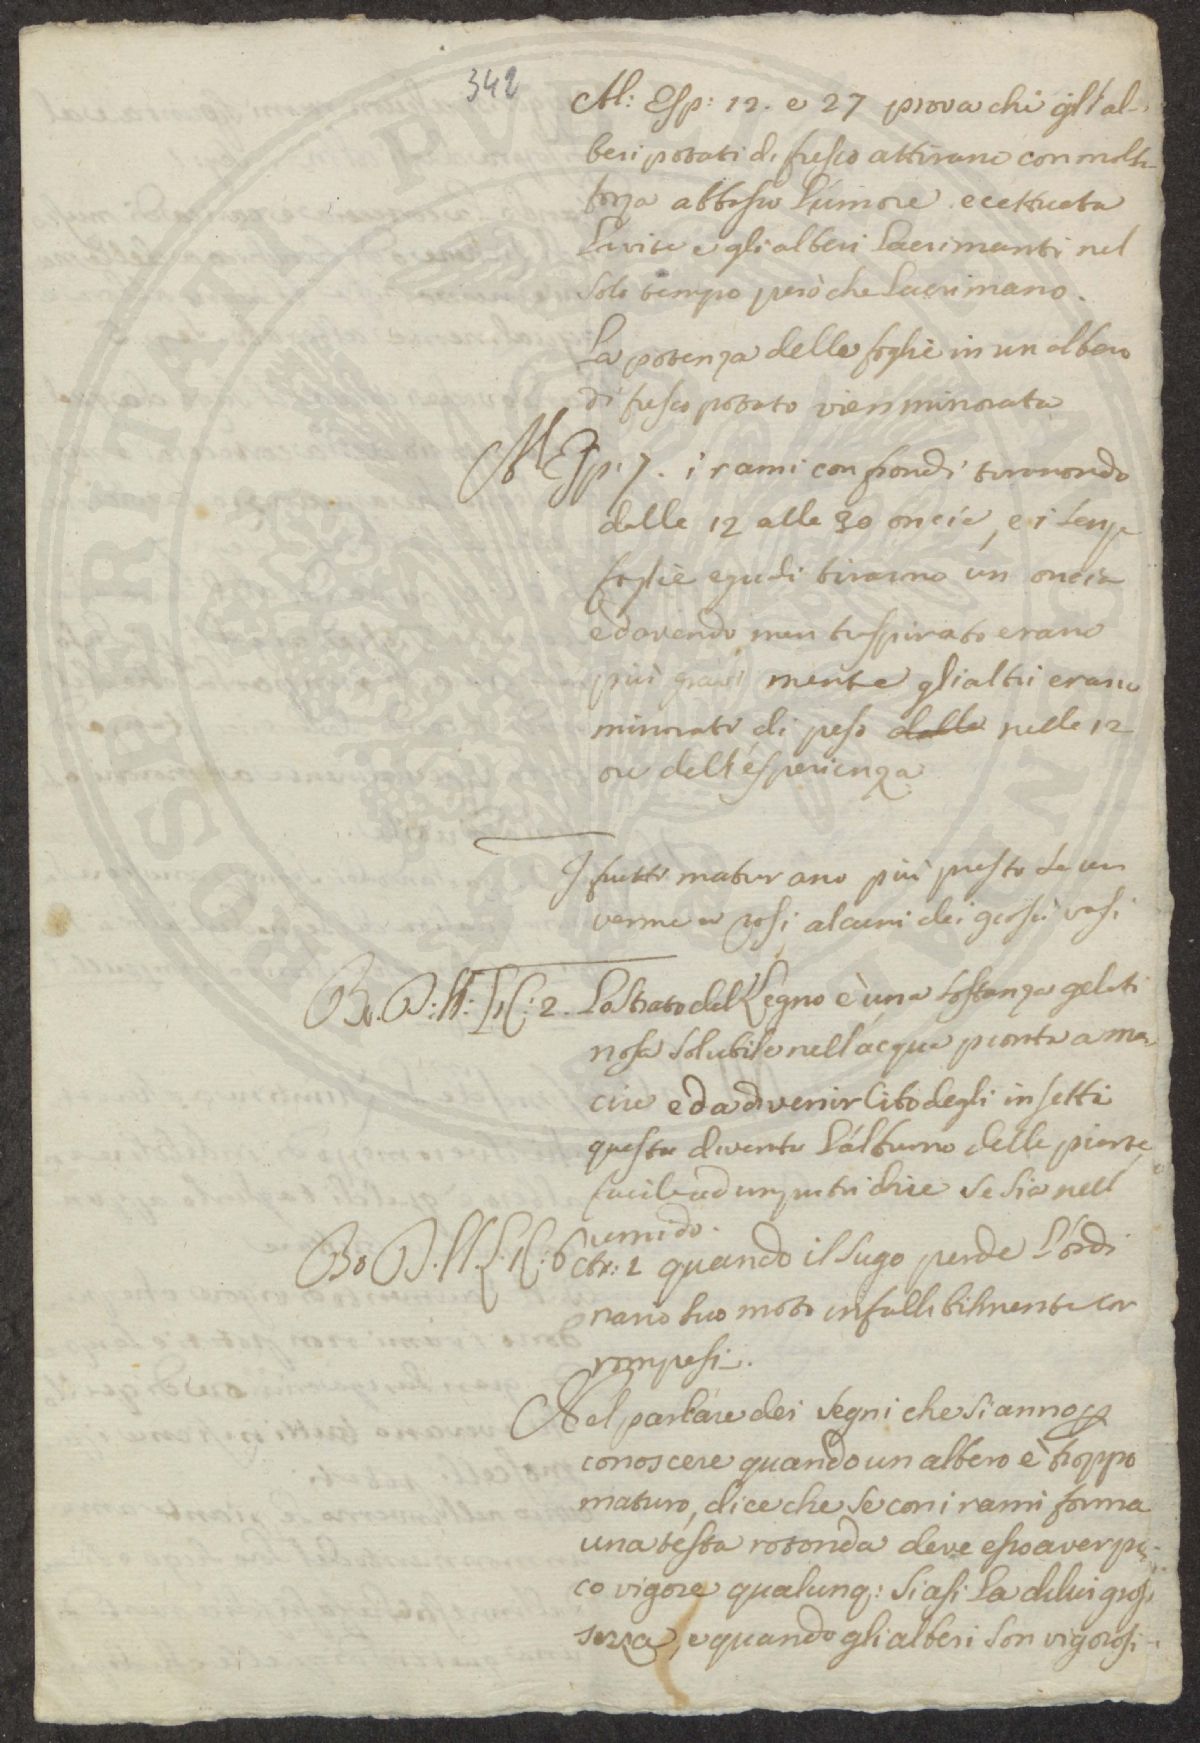 342
Al: Esp: 12. e 27 prova chi gl'al-
beri potati di fresco attirano con molta
forza abbasso l'umore eccettuata
la vite e gli alberi lacrimanti nel
solo tempo però che lacrimano.
La potenza delle foglie in un albero
di fresco potato vien minorata
Al Esp. 7. i rami con frondi tirarondo
dalle 12 alle 30 oncie, e i senza
foglie eguali tirarono un oncia
ed avendo men traspirato erano
più gravi mentre gli altri erano
minorati di peso dalle nelle 12
ore dell'esperienza
I frutti maturano più presto se un
verme rosi alcuni dei grossi vasi
2. Lo strato del Legno è una sostanza gelati
nosa solubile nell'acqua pronta a mar
cire ed a divenir Cibo degli insetti
questa diventa l'alburno delle piante
facile ad imputridire se sia nell
umido.
quando il sugo perde l'ordi
nario suo moto infallibilmente cor
rompesi.
Nel parlare dei segni che si anno p
conoscere quando un albero è troppo
maturo, dice che se con i rami forma
una testa rotonda deve esso aver po-
co vigore qualunq: siasi la di lui gros
sezza, e quando gli alberi son vigorosi